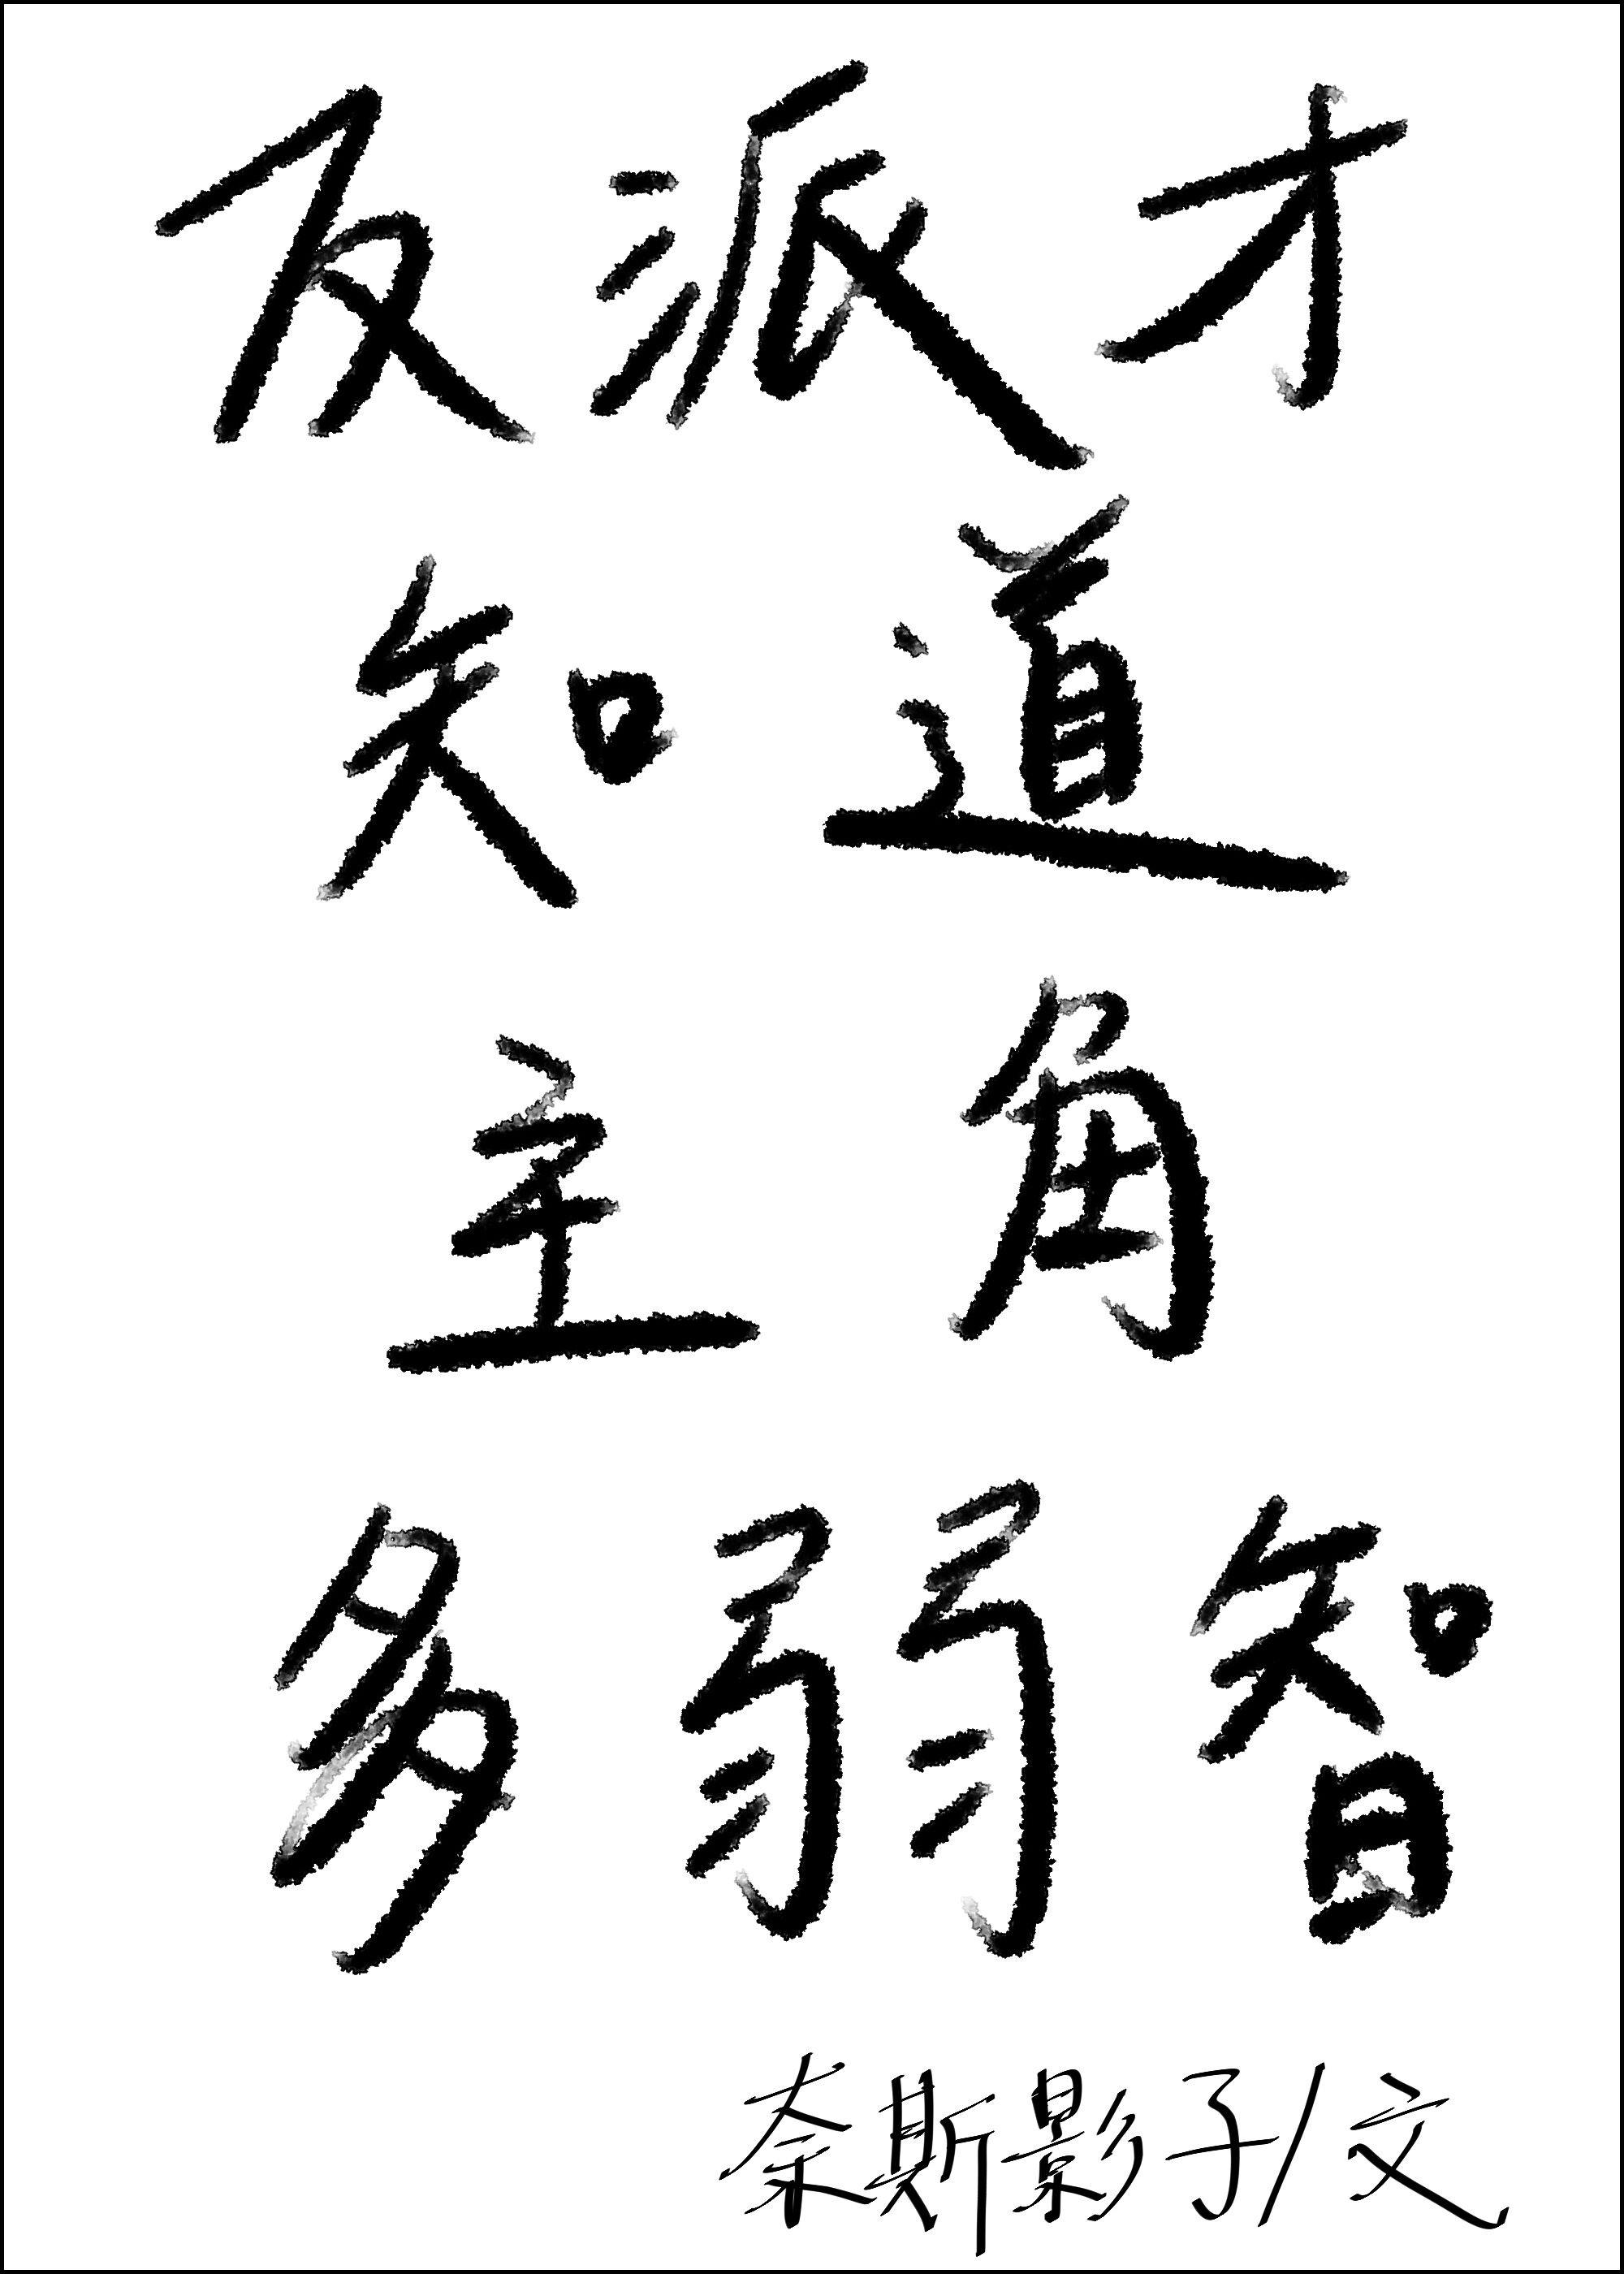 反派才
知道
主角
多弱智
奈斯影子/文